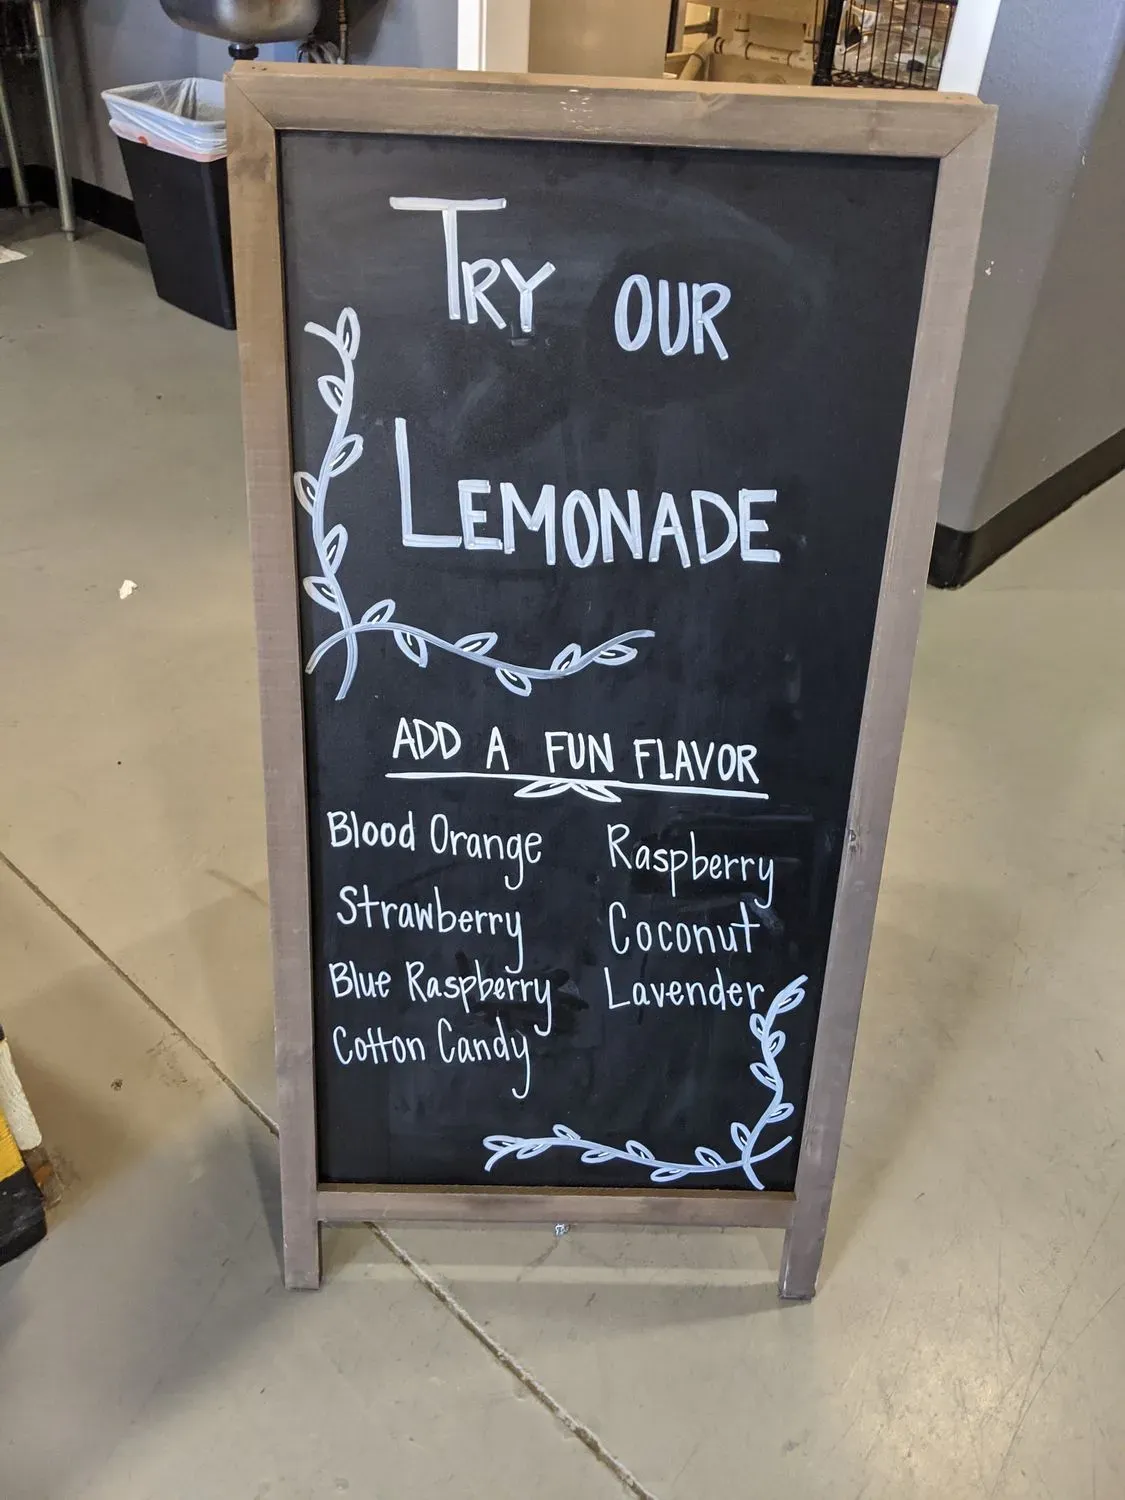 TRY OUR
LEMONADE
ADD A FUN FLAVOR
Blood Orange
Strawberry
Blue Raspberry
Cotton Candy
Raspberry
Coconut
Lavender